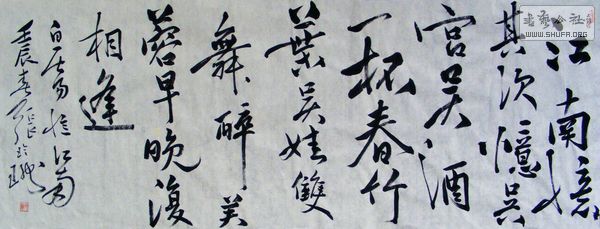 江南憶
其次憶吳
宮吳酒
一杯春竹
葉吳娃雙
舞醉芙
蓉早晚復
相逢
白居易憶江南
壬辰春
書藝公社
WWW.SHUFA.ORG